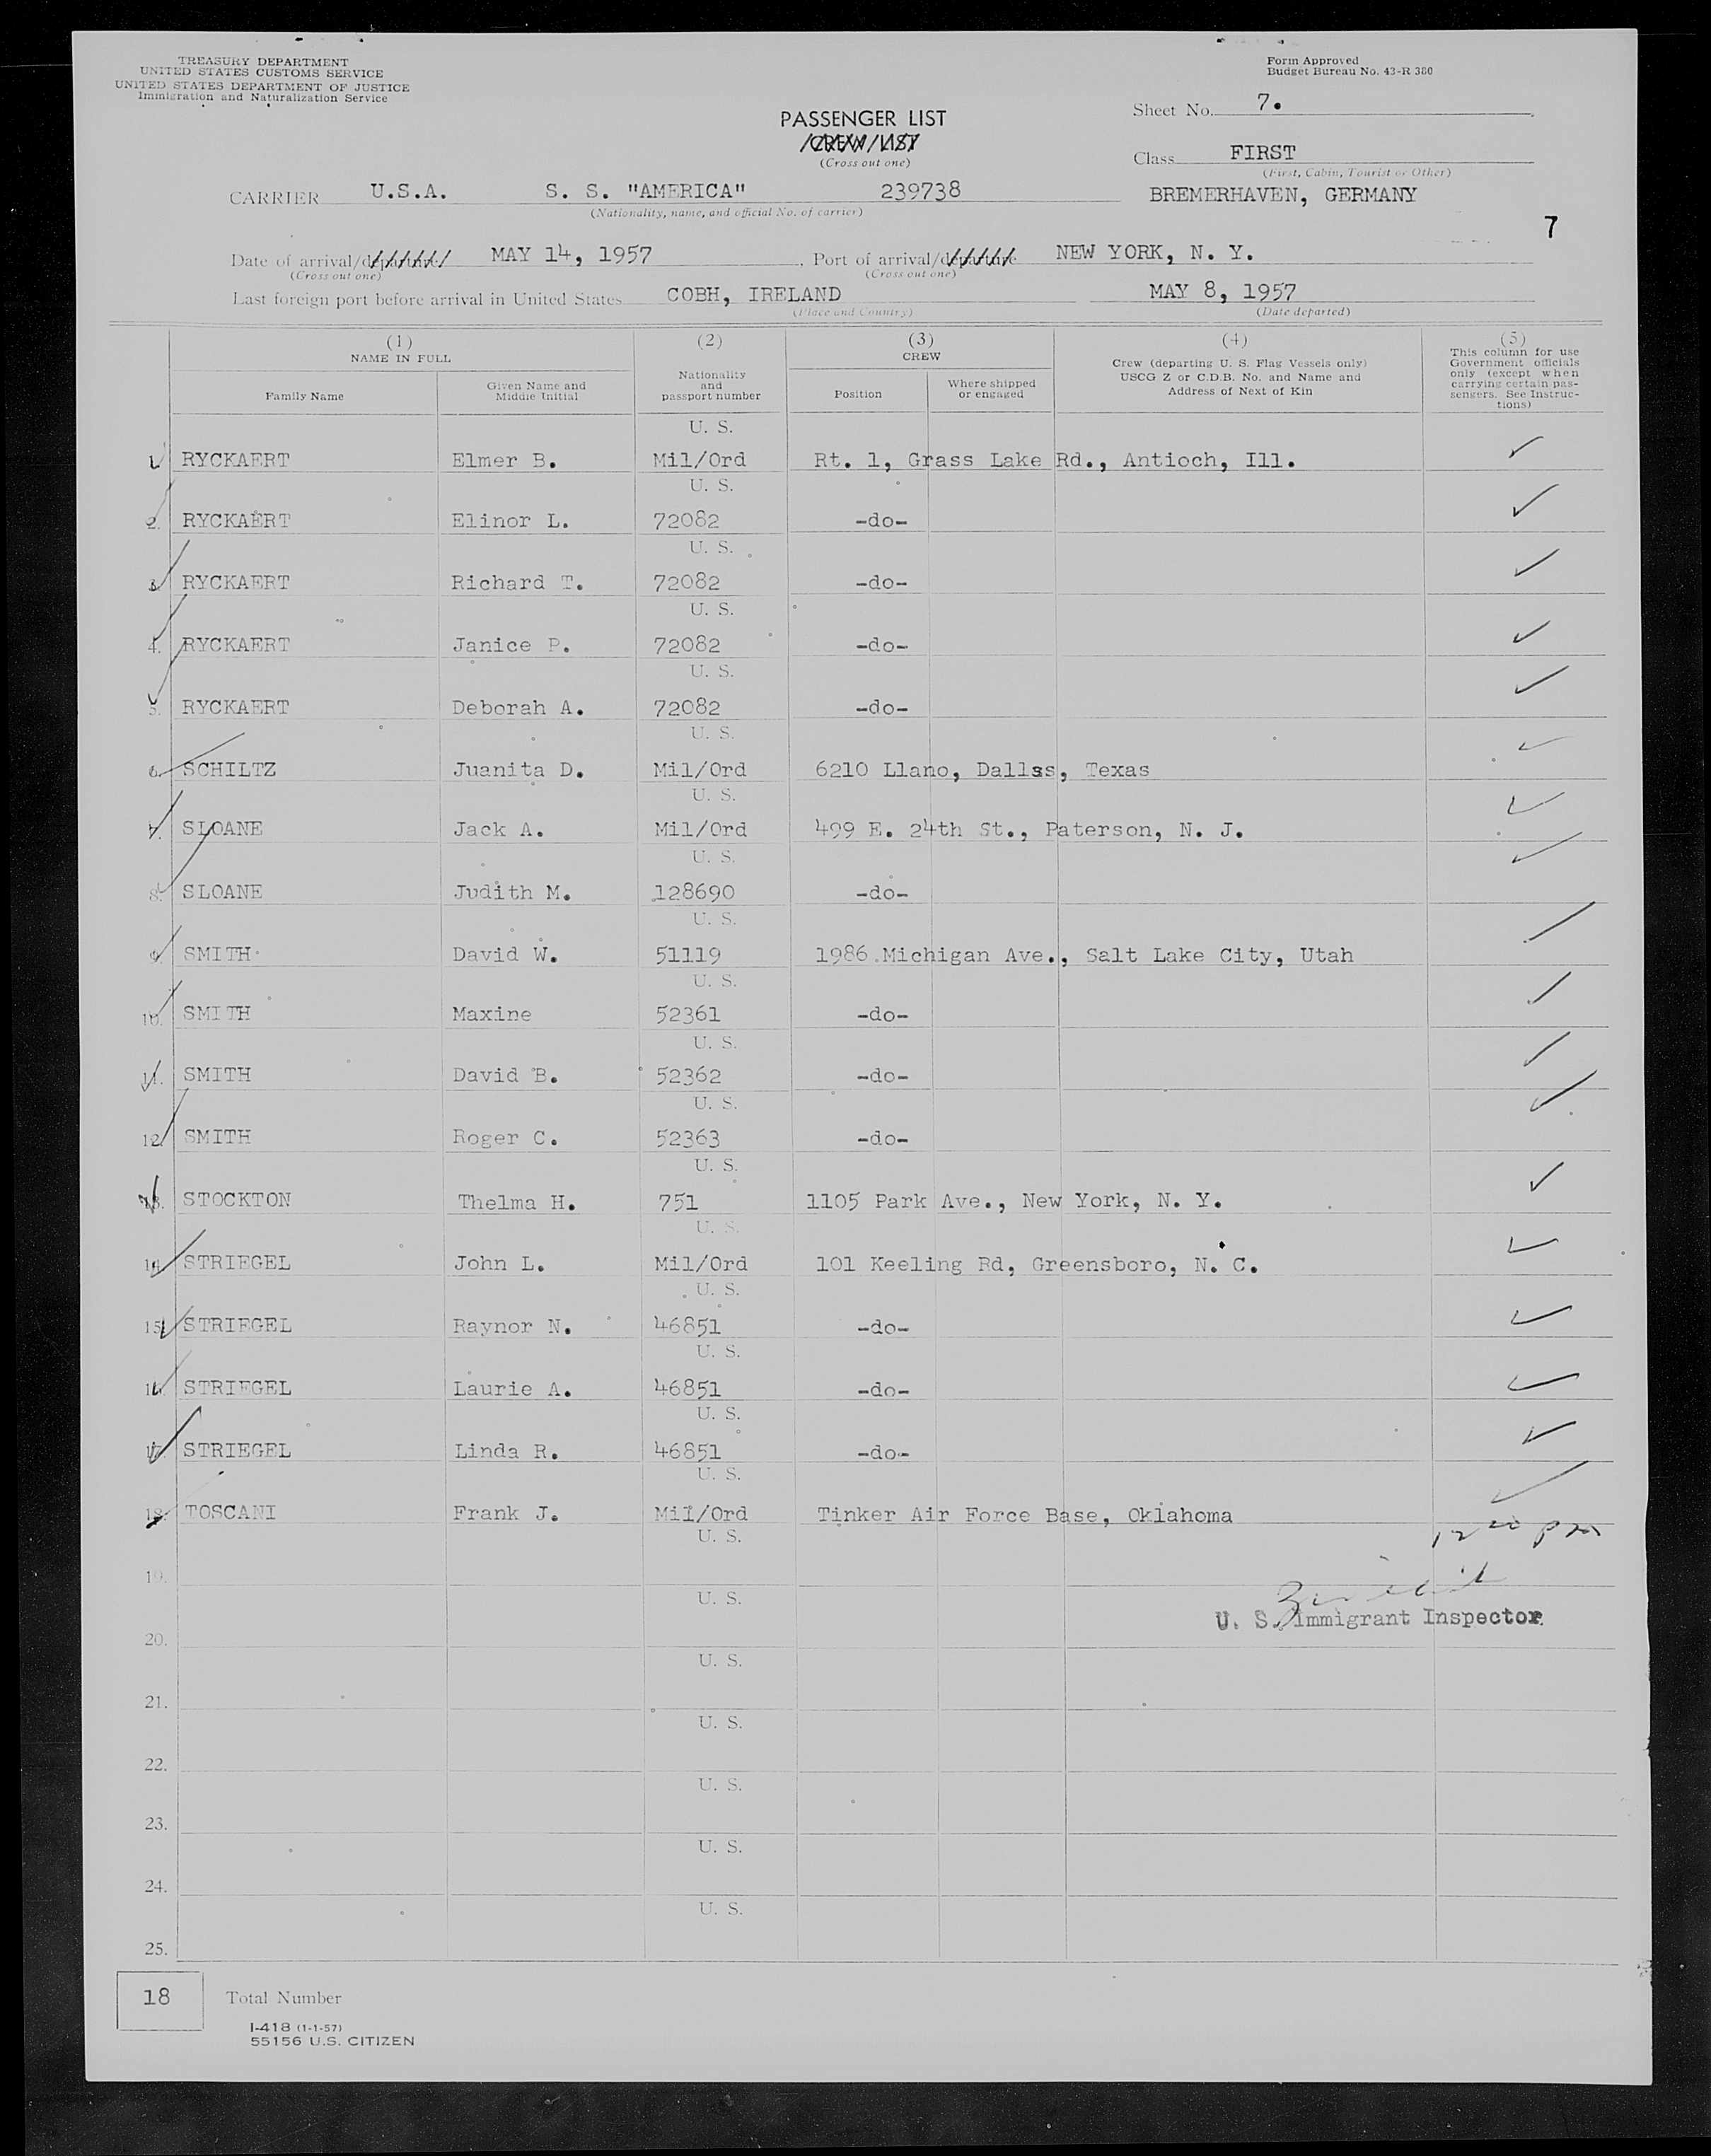 TREASURY DEPARTMENT
UNITED STATES CUSTOMS SERVICE
UNITED STATES DEPARTMENT OF JUSTICE
Immigration and Naturalization Service
Form Approved
Budget Bureau No. 43-R 380
PASSENGER LIST
CREW LIST
(Cross out one)
Sheet No. 7.
Class FIRST
(First, Cabin, Tourist or Other)
CARRIER U.S.A. S. S. "AMERICA" 239738 BREMERHAVEN, GERMANY
(Nationality, name, and official No. of carrier)
7
Date of arrival/departure MAY 14, 1957, Port of arrival/departure NEW YORK, N. Y.
(Cross out one) (Cross out one)
Last foreign port before arrival in United States COBH, IRELAND MAY 8, 1957
(Place and Country) (Date departed)
(1) NAME IN FULL
Family Name
Given Name and Middle Initial
(2)
Nationality and passport number
(3) CREW
Position
Where shipped or engaged
(4)
Crew (departing U. S. Flag Vessels only)
USCG Z or C.D.B. No. and Name and
Address of Next of Kin
(5)
This column for use
Government officials
only (except when
carrying certain pas-
sengers. See Instruc-
tions)
U. S.
1. RYCKAERT Elmer B. Mil/Ord Rt. 1, Grass Lake Rd., Antioch, Ill.
U. S.
2. RYCKAERT Elinor L. 72082 -do-
U. S.
3. RYCKAERT Richard T. 72082 -do-
U. S.
4. RYCKAERT Janice P. 72082 -do-
U. S.
5. RYCKAERT Deborah A. 72082 -do-
U. S.
6. SCHILTZ Juanita D. Mil/Ord 6210 Llano, Dallas, Texas
U. S.
7. SLOANE Jack A. Mil/Ord 499 E. 24th St., Paterson, N. J.
U. S.
8. SLOANE Judith M. 128690 -do-
U. S.
9. SMITH David W. 51119 1986 Michigan Ave., Salt Lake City, Utah
U. S.
10. SMITH Maxine 52361 -do-
U. S.
11. SMITH David B. 52362 -do-
U. S.
12. SMITH Roger C. 52363 -do-
U. S.
13. STOCKTON Thelma H. 751 1105 Park Ave., New York, N. Y.
U. S.
14. STRIEGEL John L. Mil/Ord 101 Keeling Rd, Greensboro, N. C.
U. S.
15. STRIEGEL Raynor N. 46851 -do-
U. S.
16. STRIEGEL Laurie A. 46851 -do-
U. S.
17. STRIEGEL Linda R. 46851 -do-
U. S.
18. TOSCANI Frank J. Mil/Ord Tinker Air Force Base, Oklahoma
U. S.
19.
U. S.
U. S. Immigrant Inspector
20.
U. S.
21.
U. S.
22.
U. S.
23.
U. S.
24.
U. S.
25.
18 Total Number
I-418 (1-1-57)
55156 U.S. CITIZEN